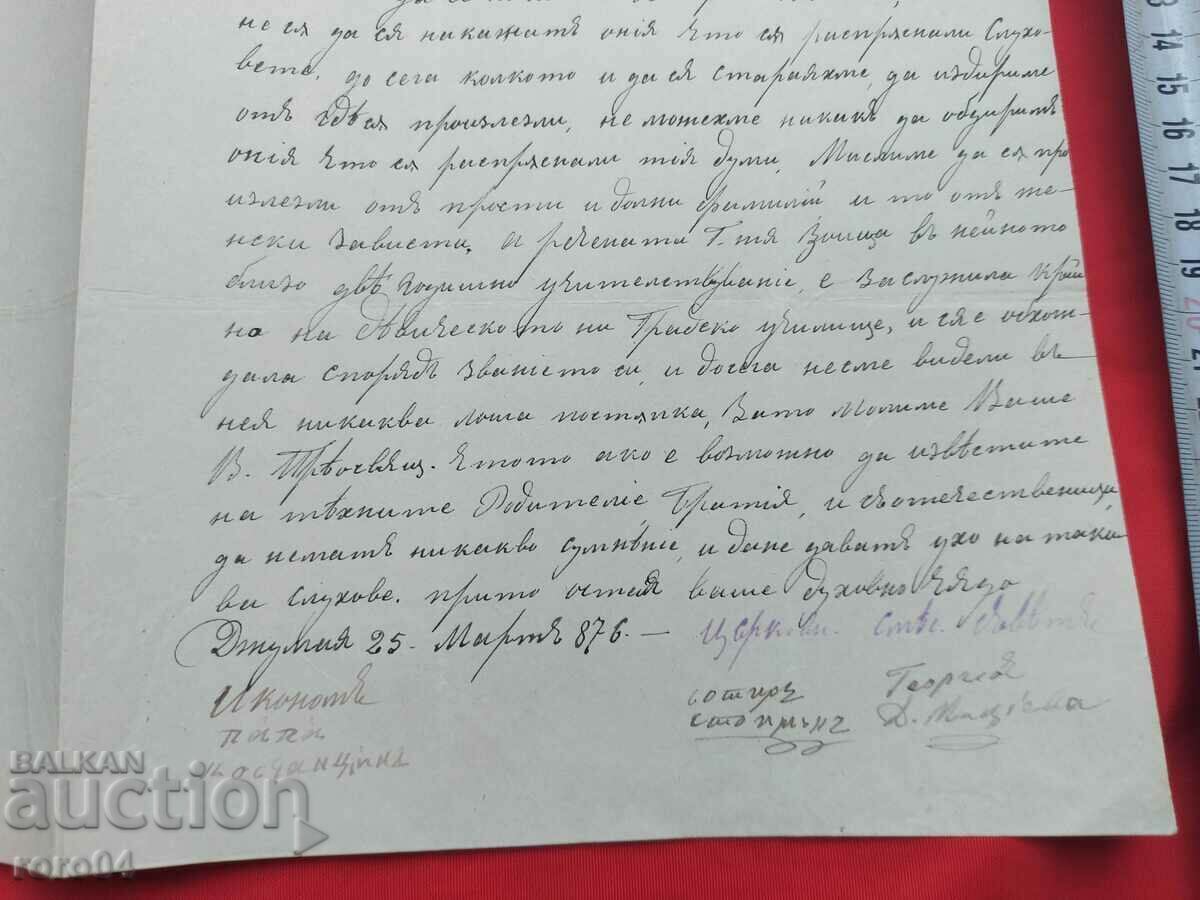 не ся да ся накажатъ ония що ся распряснали слухо-
вете. до сега колкото и да ся стараяхме, да издириме
отъ гдѣ ся произлезли, не можехме никакъ да
ония що ся распряснали тия думи, Мислиме да ся про
излезли отъ прости и долни фамилии и то отъ же-
нски зависти, а речената Г-жя Зоица въ нейното
близо двѣ годишно учителствувание, е заслужила
на на Дѣвическото ни Градско училище, и ся е обхож-
дала споредъ званието си, и досега несме видели въ
нея никаква лоша постяпка, Зато Молиме Ваше
В. Прѣосвящ. Етото ако е возможно да извѣстите
на тѣхните Родителіе, Братия, и съотечественици,
да нематъ никакво сумнѣніе, и дане даватъ ухо на така
ва слухове. прито остая ваше духовно чядо
Джумая 25. Мартъ 876. — Църковн. смѣс. съвѣтъ
Икономъ
папа
костанцинъ
сотиръ
Георгія
Д.
BALKAN
auction
roro04
13 14 15 16 17 18 19 20 21